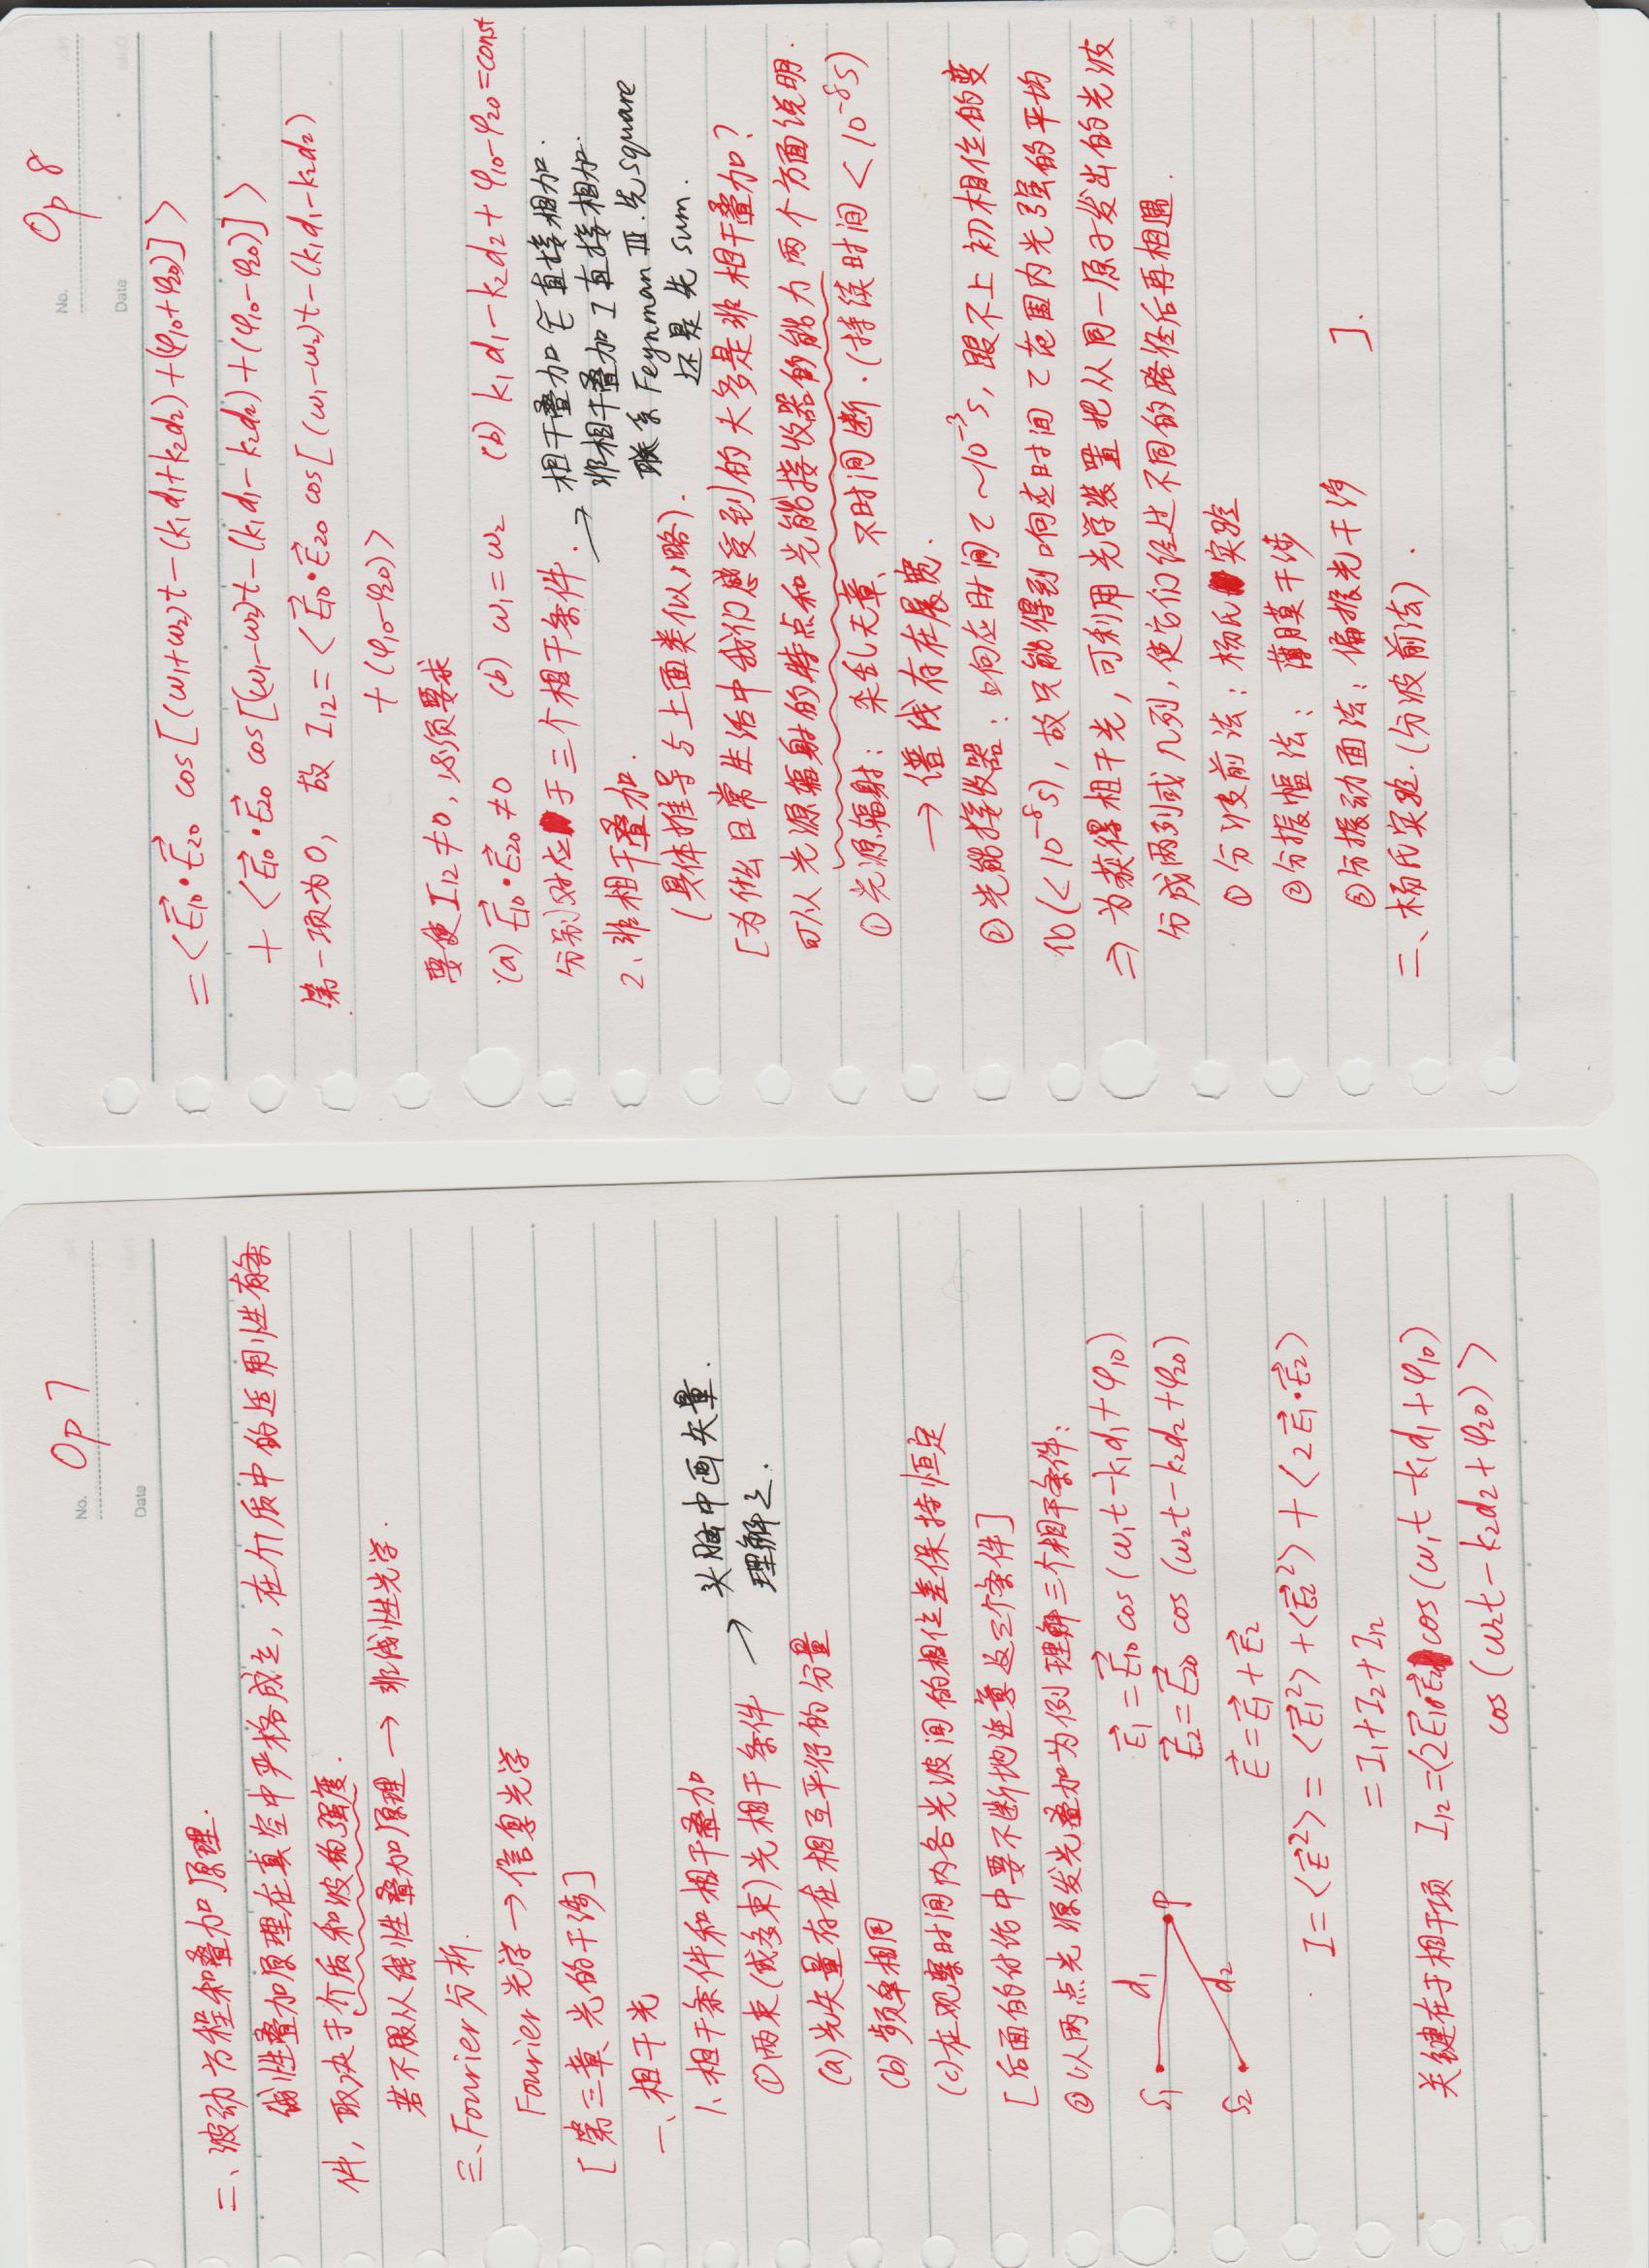 No. Op 7
Date
二、波动方程和叠加原理.
线性叠加原理在真空中严格成立，在介质中的适用性有条
件，取决于介质和波的强度.
若不服从线性叠加原理 → 非线性光学.
三、Fourier分析.
Fourier光学 → 信息光学
[第三章、光的干涉]
一、相干光
1、相干条件和相干叠加
①两束(或多束)光相干条件 → 头脑中画矢量.
理解之.
(a)光矢量存在相互平行的分量
(b)频率相同
(c)在观察时间内各光波间的相位差保持恒定
[后面的讨论中要不断地注意这三个条件]
②以两点光源发光叠加为例理解三个相干条件：
S₁ d₁ P
S₂ d₂
E⃗₁ = E⃗₁₀ cos(ω₁t-k₁d₁+φ₁₀)
E⃗₂ = E⃗₂₀ cos(ω₂t-k₂d₂+φ₂₀)
E⃗ = E⃗₁ + E⃗₂
I = ⟨E⃗²⟩ = ⟨E⃗₁²⟩ + ⟨E⃗₂²⟩ + ⟨2E⃗₁·E⃗₂⟩
= I₁+I₂+I₁₂
关键在于相干项 I₁₂ = ⟨2E⃗₁₀·E⃗₂₀ cos(ω₁t-k₁d₁+φ₁₀)
cos(ω₂t-k₂d₂+φ₂₀)⟩
No. Op 8
Date
= ⟨E⃗₁₀·E⃗₂₀ cos[(ω₁+ω₂)t-(k₁d₁+k₂d₂)+(φ₁₀+φ₂₀)]⟩
+ ⟨E⃗₁₀·E⃗₂₀ cos[(ω₁-ω₂)t-(k₁d₁-k₂d₂)+(φ₁₀-φ₂₀)]⟩
第一项为0，故 I₁₂ = ⟨E⃗₁₀·E⃗₂₀ cos[(ω₁-ω₂)t-(k₁d₁-k₂d₂)
+(φ₁₀-φ₂₀)⟩
要使I₁₂≠0，必须要求
(a) E⃗₁₀·E⃗₂₀≠0 (b) ω₁=ω₂ (b) k₁d₁-k₂d₂+φ₁₀-φ₂₀=const
分别对应于三个相干条件.
2、非相干叠加.
→ 相干叠加 E⃗ 直接相加.
非相干叠加 I 直接相加.
联系Feynman Ⅲ.先square
还是先sum.
(具体推导与上面类似，略).
[为什么日常生活中我们感受到的大多是非相干叠加？
可从光源辐射的特点和光能接收器的能力两个方面说明.
①光源辐射：杂乱无章、不时间断.(持续时间<10⁻⁸s)
→ 谱线存在展宽.
②光能接收器：响应时间τ~10⁻³s，跟不上初相位的变
化(<10⁻⁸s)，故只能得到响应时间τ范围内光强的平均
⇒ 为获得相干光，可利用光学装置把从同一原子发出的光波
分成两列或几列，使它们经过不同的路径后再相遇.
①分波前法：杨氏实验
②分振幅法：薄膜干涉
③分振动面法：偏振光干涉 ].
二、杨氏实验.(分波前法).